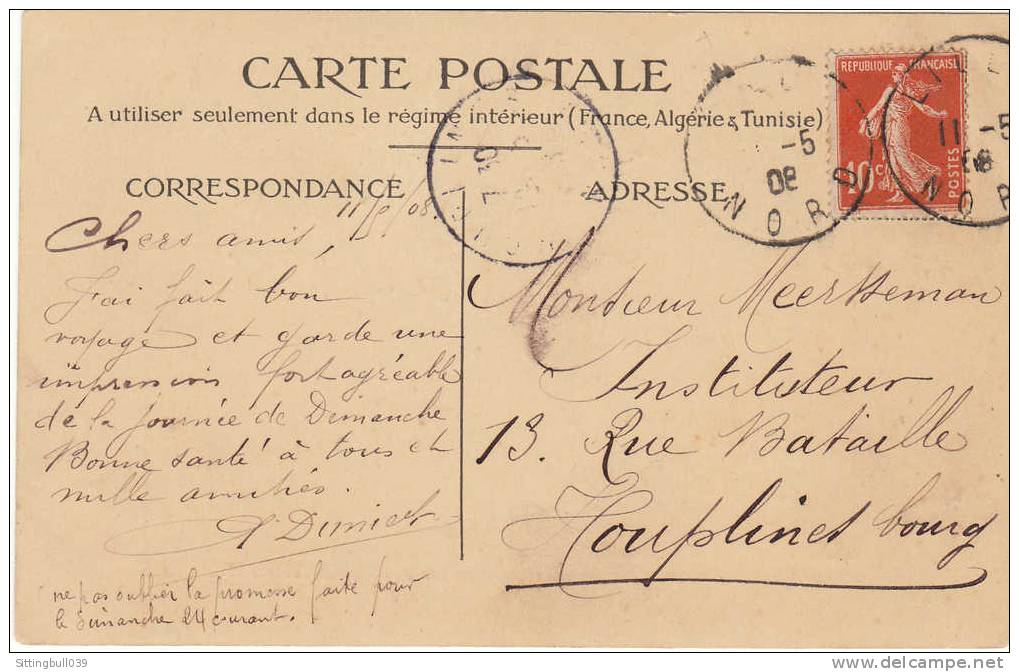 CARTE POSTALE
A utiliser seulement dans le régime intérieur (France, Algérie & Tunisie)
CORRESPONDANCE
11/5/08.
Chers amis,
J'ai fait bon
voyage et garde une
impression fort agréable
de la journée de Dimanche
Bonne santé à tous et
mille amitiés.
ne pas oublier la promesse faite pour
le Dimanche 24 courant.
ADRESSE
Monsieur Meersseman
Instituteur
13. Rue Bataille
Houplines bourg
RÉPUBLIQUE FRANÇAISE
10 c
POSTES
-5
08
NORD
11 -5
08
NOR
7 30
Sittingbull039
www.delcampe.net